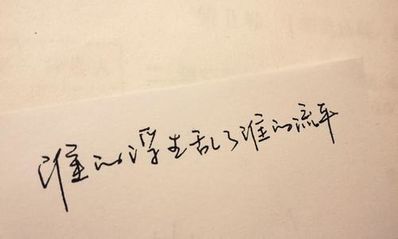 谁的浮生乱了谁的流年